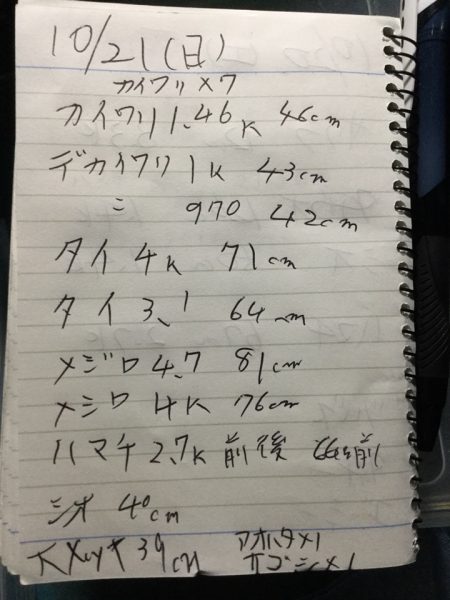 10/21(日)
カイワリ×7
カイワリ 1.46K 46cm
デカイワリ 1K 43cm
〃 970 42cm
タイ 4K 71cm
タイ 3.1 64cm
メジロ 4.7 81cm
メジロ 4K 76cm
ハマチ 2.7K 前後 66前
シオ 40cm
39cm アホダ×1
オゴシ×1